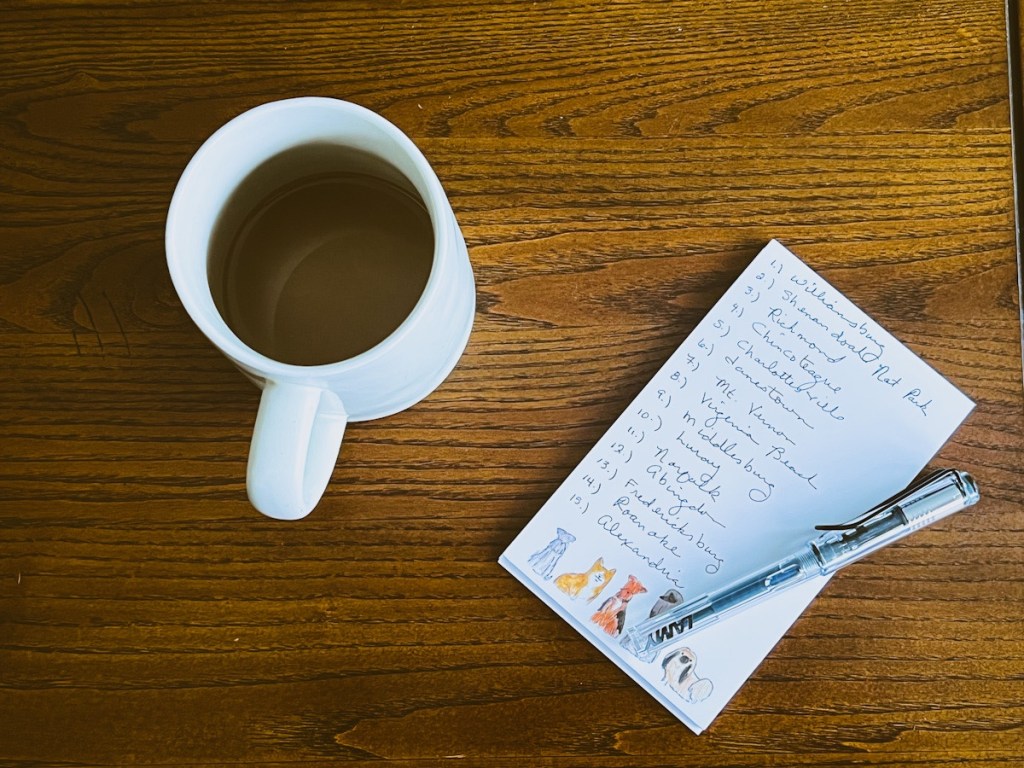 1.) Williamsburg
2.) Shenandoah Nat Park
3.) Richmond
4.) Chincoteague
5.) Charlottesville
6.) Jamestown
7.) Mt. Vernon
8.) Virginia Beach
9.) Middlesburg
10.) Luray
11.) Norfolk
12.) Abingdon
13.) Fredericksburg
14.) Roanoke
15.) Alexandria
LAMY